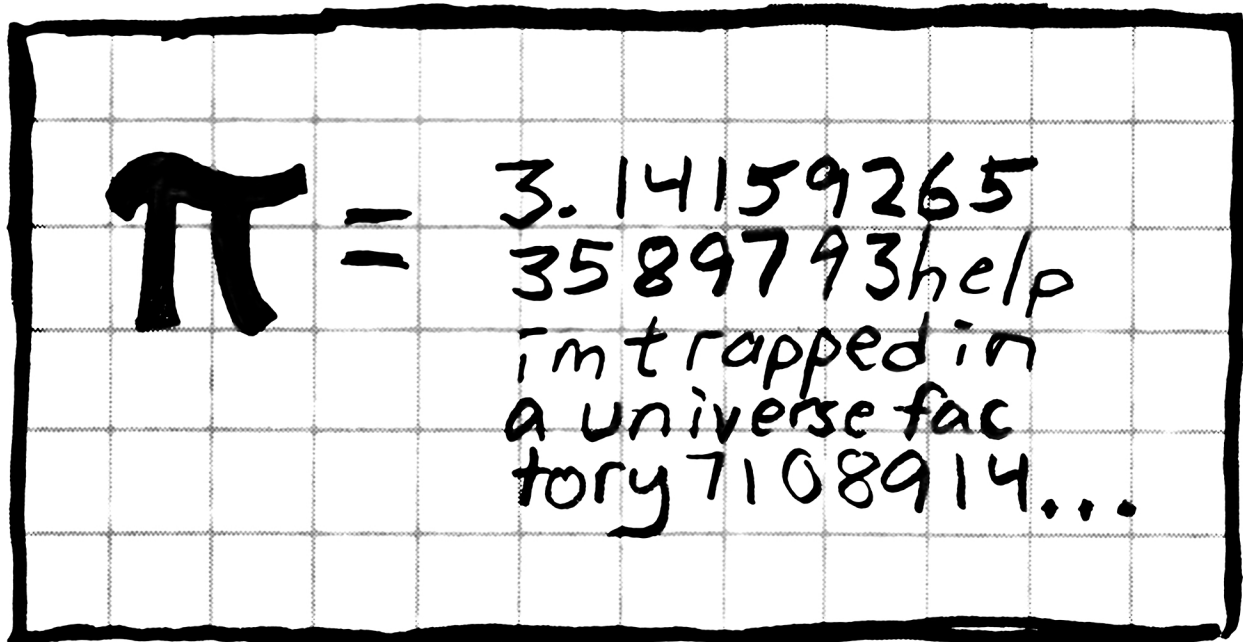 π = 3.14159265
3589793help
imtrappedin
a universe fac
tory7108914...